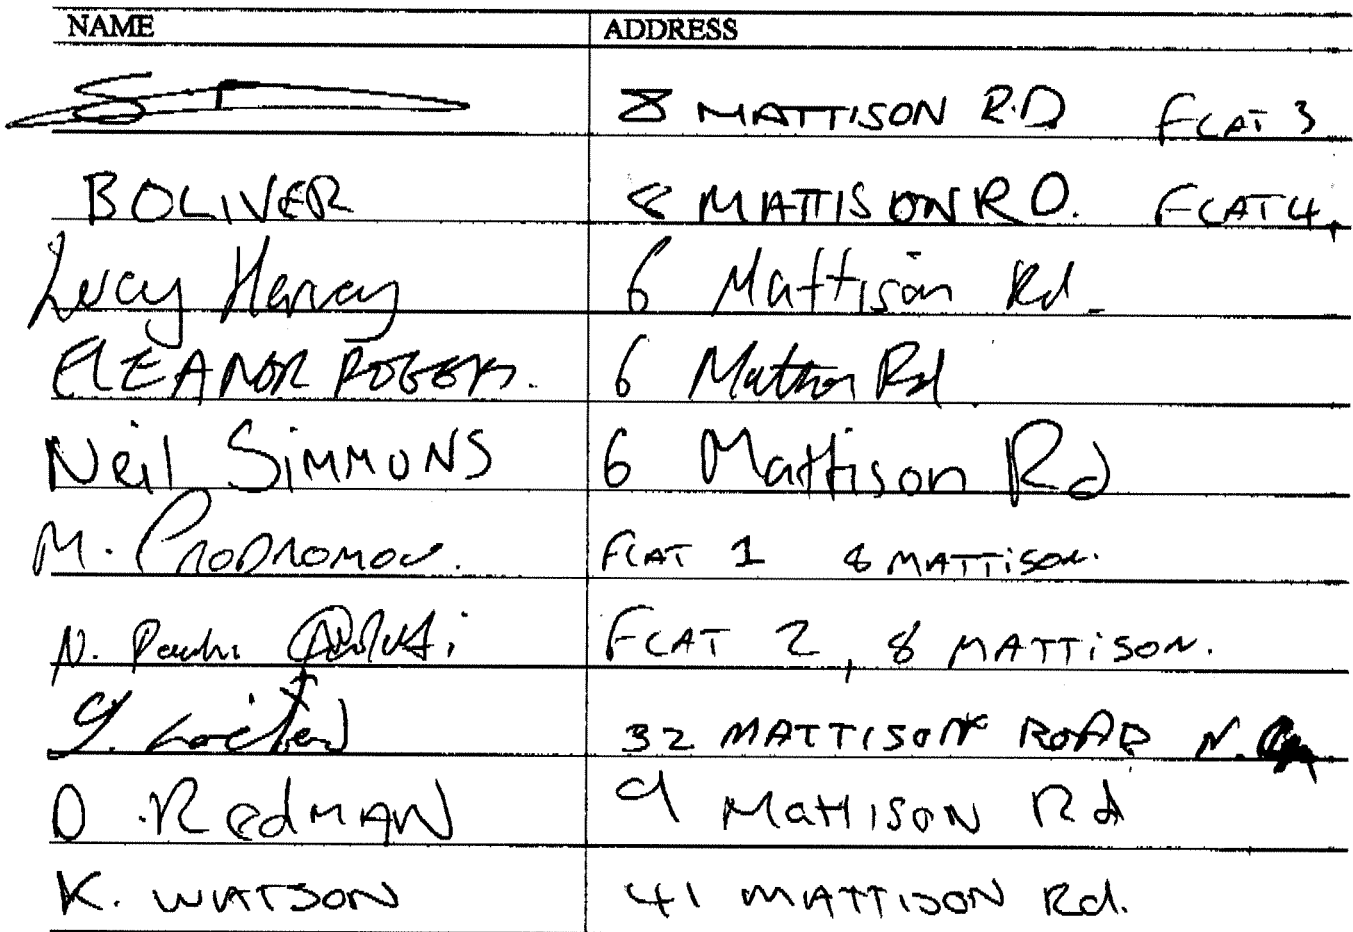 NAME ADDRESS
8 MATTISON R.D FLAT 3
BOLIVER 8 MATTISON RD. FLAT 4,
Lucy Harvey 6 Mattison Rd.
ELEANOR ROGERS. 6 Rd
Neil SIMMONS 6 Mattison Rd
M. PRODROMOU. FLAT 1 8 MATTISON.
N. FLAT 2, 8 MATTISON.
32 MATTISON ROAD N.
D. REdMAN 9 MattISON Rd
K. WATSON 41 MATTISON Rd.